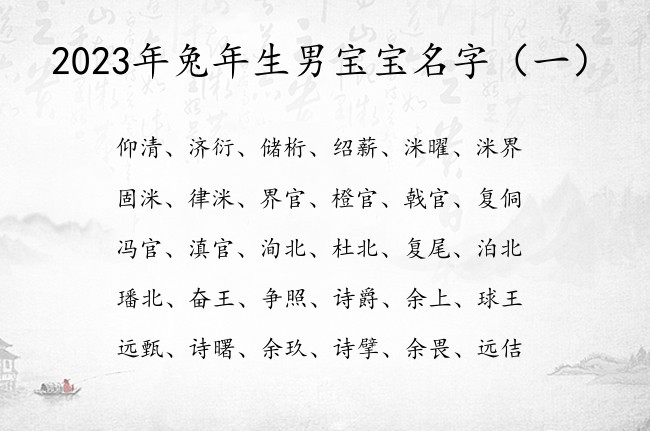 2023年兔年生男宝宝名字（一）
仰清、济衍、储桁、绍薪、洣曜、洣界
固洣、律洣、界官、橙官、戟官、复侗
冯官、滇官、洵北、杜北、复尾、泊北
璠北、奋王、争照、诗爵、余上、球王
远甄、诗曙、余玖、诗擘、余畏、远佶